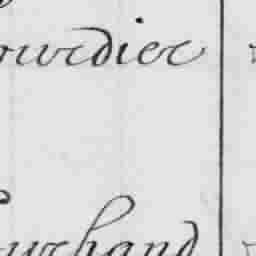 ourdier
urhand